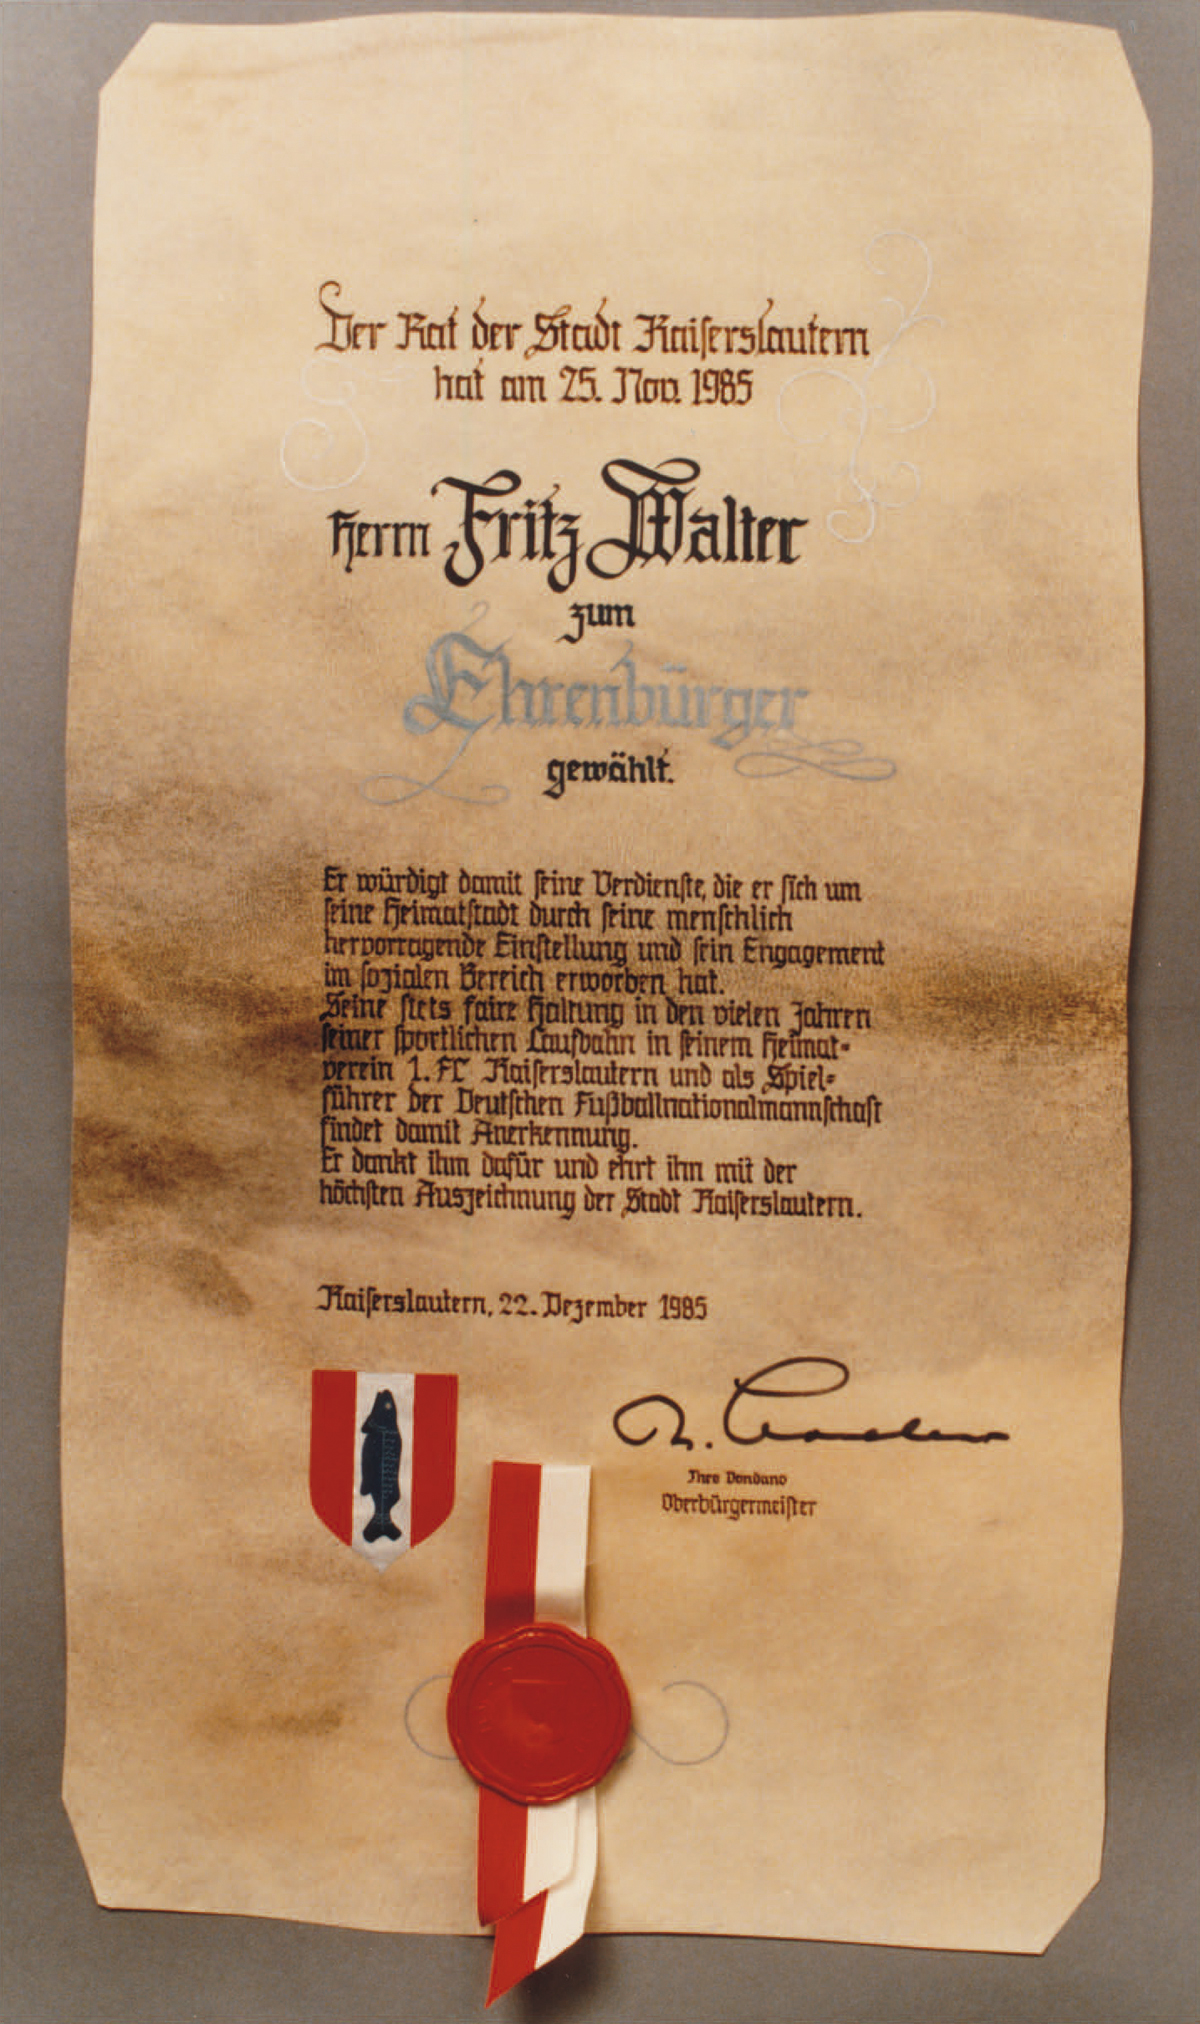 Der Rat der Stadt Kaiserslautern
hat am 25. Nov. 1985
Herrn Fritz Walter
zum
Ehrenbürger
gewählt.
Er würdigt damit seine Verdienste, die er sich um
seine Heimatstadt durch seine menschlich
hervorragende Einstellung und sein Engagement
im sozialen Bereich erworben hat.
Seine stets faire Haltung in den vielen Jahren
seiner sportlichen Laufbahn in seinem Heimat-
verein 1. FC Kaiserslautern und als Spiel-
führer der Deutschen Fußballnationalmannschaft
findet damit Anerkennung.
Er dankt ihm dafür und ehrt ihn mit der
höchsten Auszeichnung der Stadt Kaiserslautern.
Kaiserslautern, 22. Dezember 1985
Theo Vondano
Oberbürgermeister